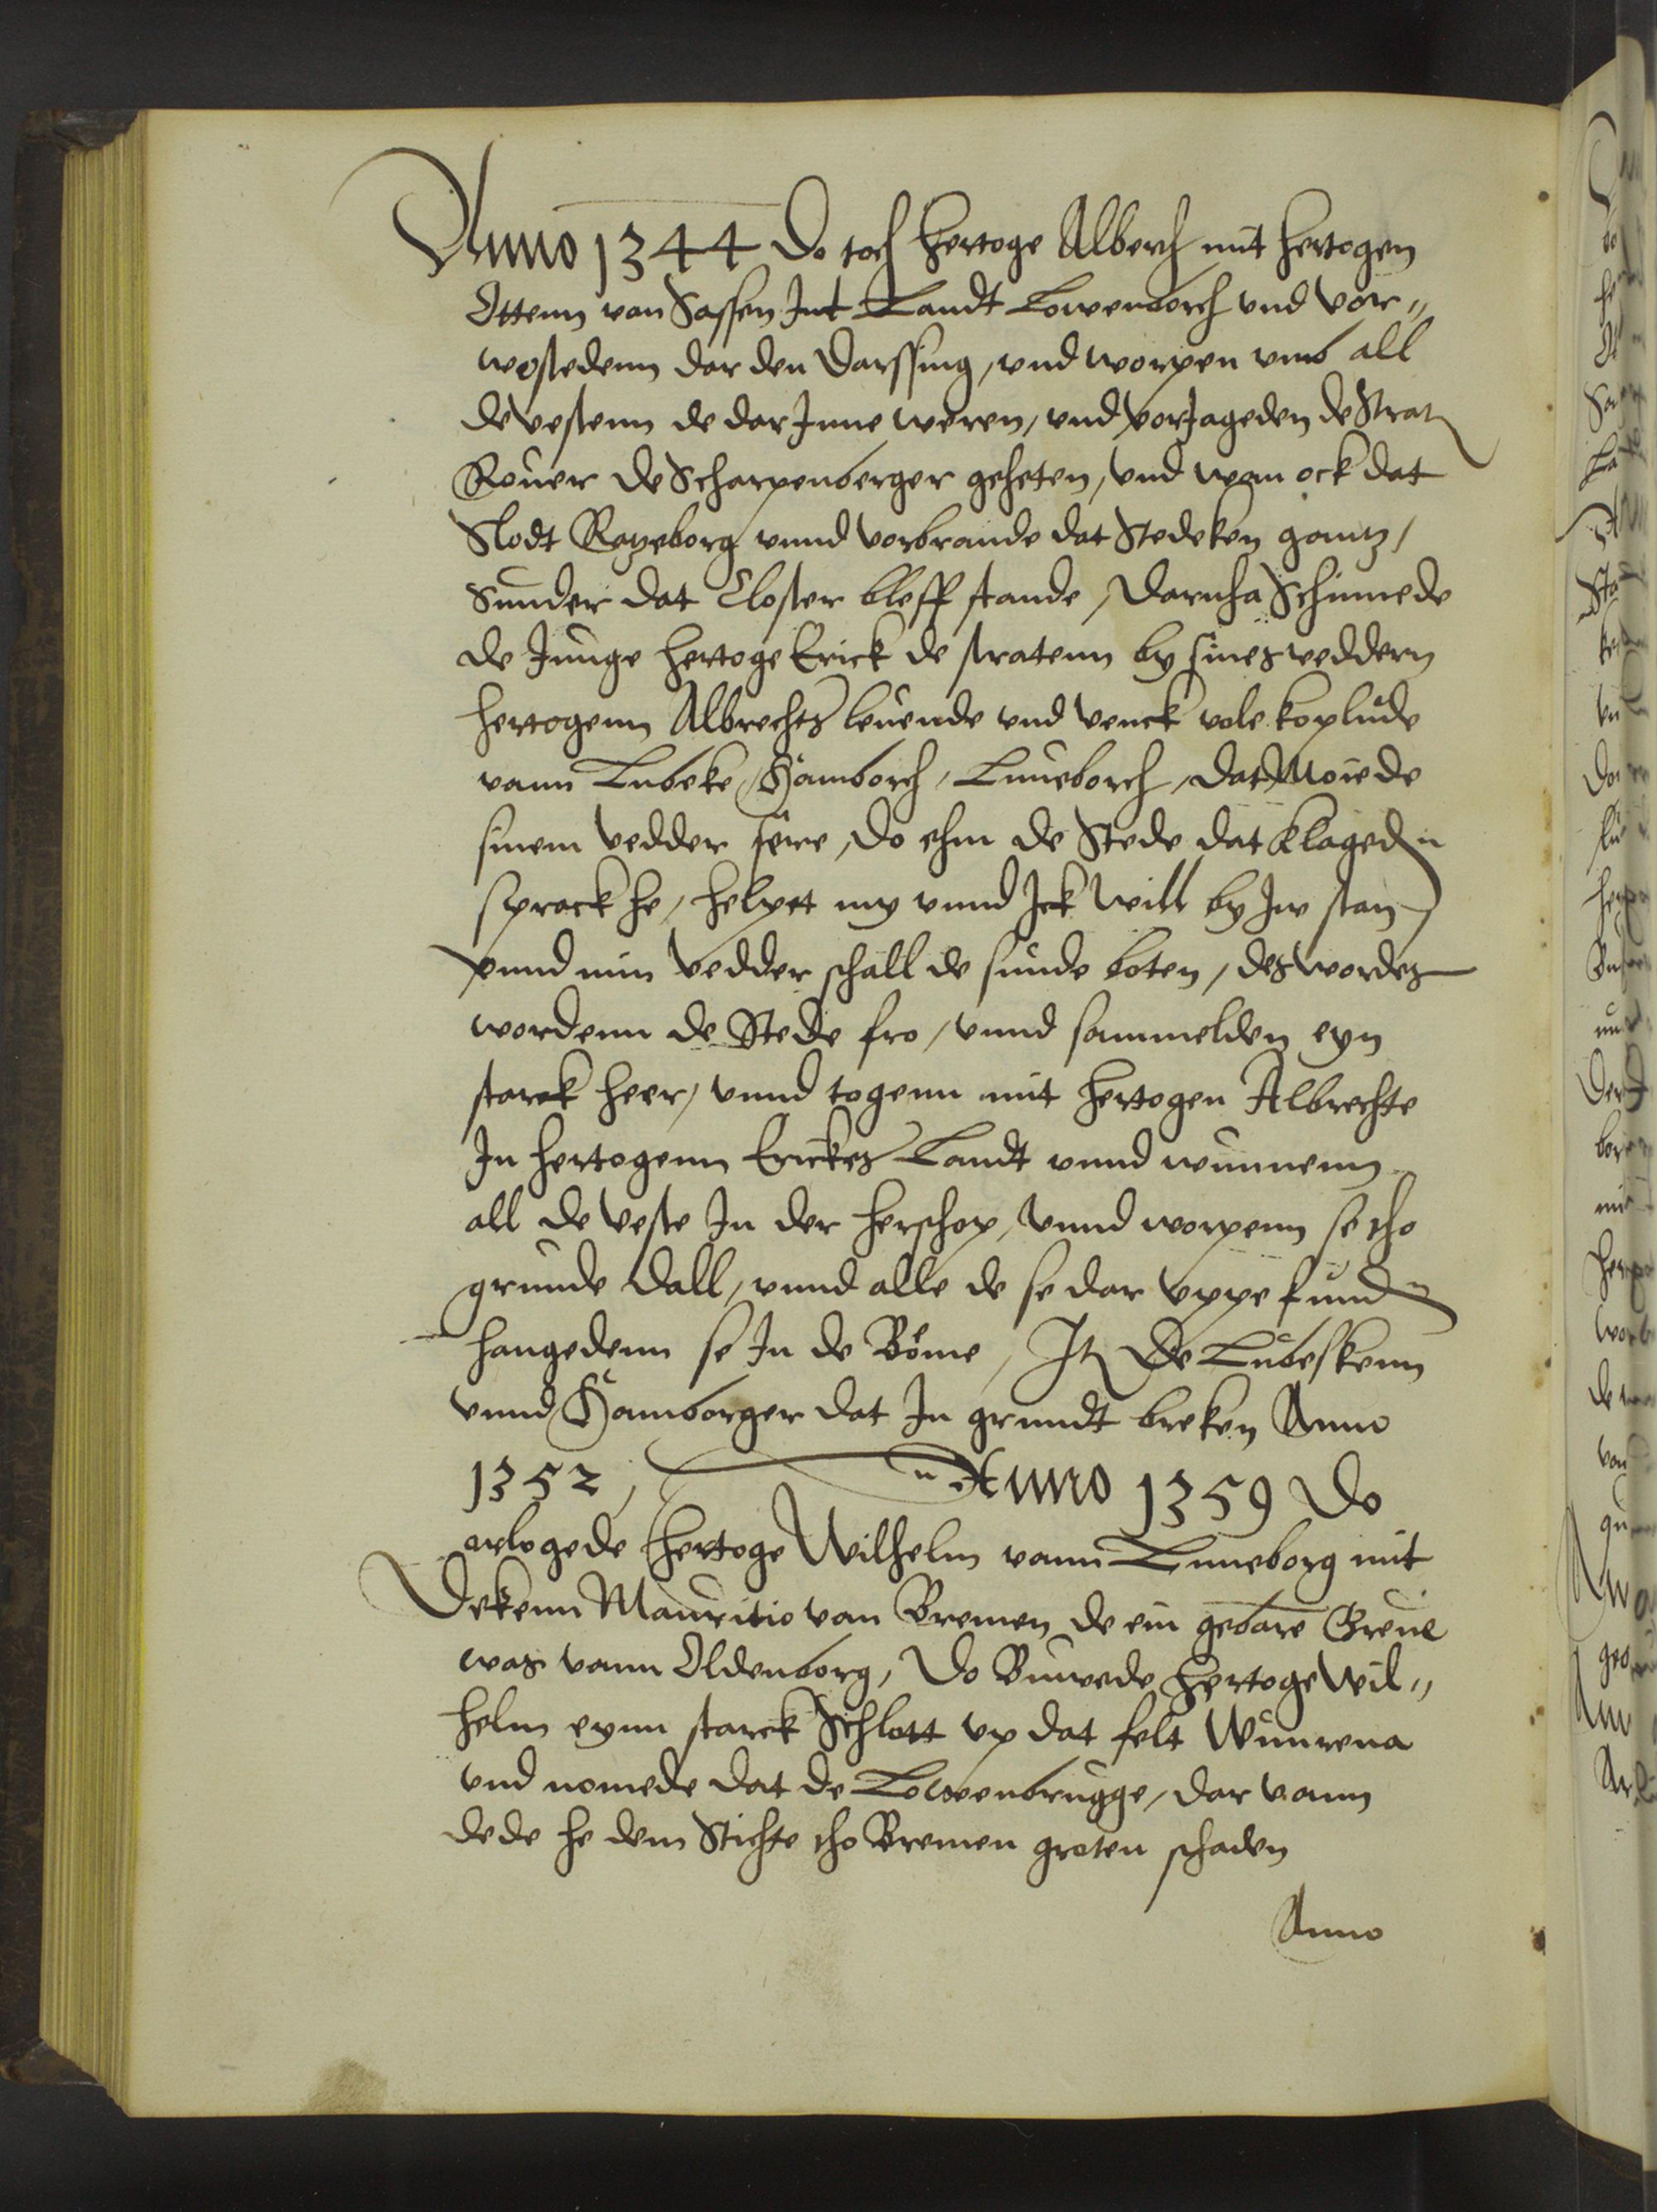 Anno 1344 Do toch hertoge Alberch mit hertogen
Ottenn van Sassen Int Landt Lowenborch vnd vor„
wostedenn dar den Darssing, vnd worpen vmb all
de vestenn de dar Inne weren, vnd vorJageden de Straten
Rouer de Scharpenberger geheten, vnd wan ock dat
Slodt Ratzeborg vnnd vorbrande dat Stedeken gantz,
Sunder dat Closter bleff stande, Darnha Schinnede
de Junge hertoge Erick de stratenn by sines veddern
hertogenn Albrechts leuende vnd venck vele koplude
vann Lubeke, Hamborch, Luneborch, Dat Moiede
sinem vedder sere, do ehm de Stede dat klageden
sprack he, helpet my vnnd Ick will by Jw stan,
vnnd min vedder schall de sunde boten, des wordes
wordenn de Stede fro, vnnd sammelden eyn
starck heer, vnnd togenn mit hertogen Albrechte
In hertogenn Erickes Landt vnnd wunnenn
all de veste In der herschop, vnnd worpenn se tho
grunde dall, vnnd alle de se dar vppe funden
hangedenn se In de Böme, Itz De Lubeskenn
vnnd Hamborger dat In grundt breken Anno
1352, Anno 1359 Do
orlogede hertoge Wilhelm vann Luneborg mit
Dekenn Mauritio van Bremen de ein gebarē Greue
was vann Oldenborg, Do Buwede hertoge Wil„
helm eynn starck Schlott vp dat felt Wunrena
vnd nomede dat de Lowenbrugge, dar vann
dede he dem Stichte tho Bremen groten schaden
Anno